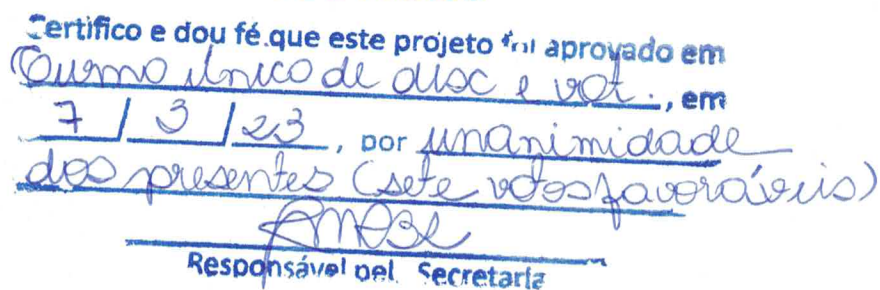 Certifico e dou fé que este projeto foi aprovado em
Turno único de disc e vot., em
7 / 3 / 23, por unanimidade
dos presentes (sete votos favoráveis)
Responsável pel. Secretaria